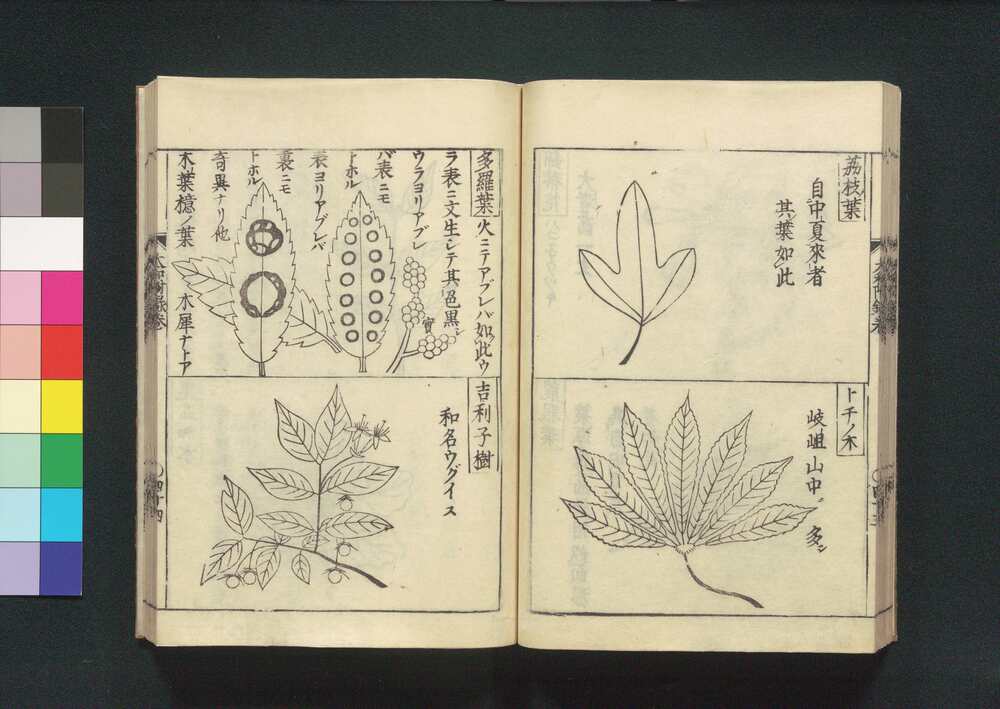 荔枝葉
自中夏來者
其葉如此
トチノ木
岐岨山中ニ多シ
多羅葉
火ニテアブレバ如此ウ
ラ表ニ文生シテ其色黒シ
ウラヨリアブレ
バ表ニモ
トホル
表ヨリアブレバ
裏ニモ
トホル
奇異ナリ他
木葉檍ノ葉
木犀ナトア
實
吉利子樹
和名ウグイス
四十四